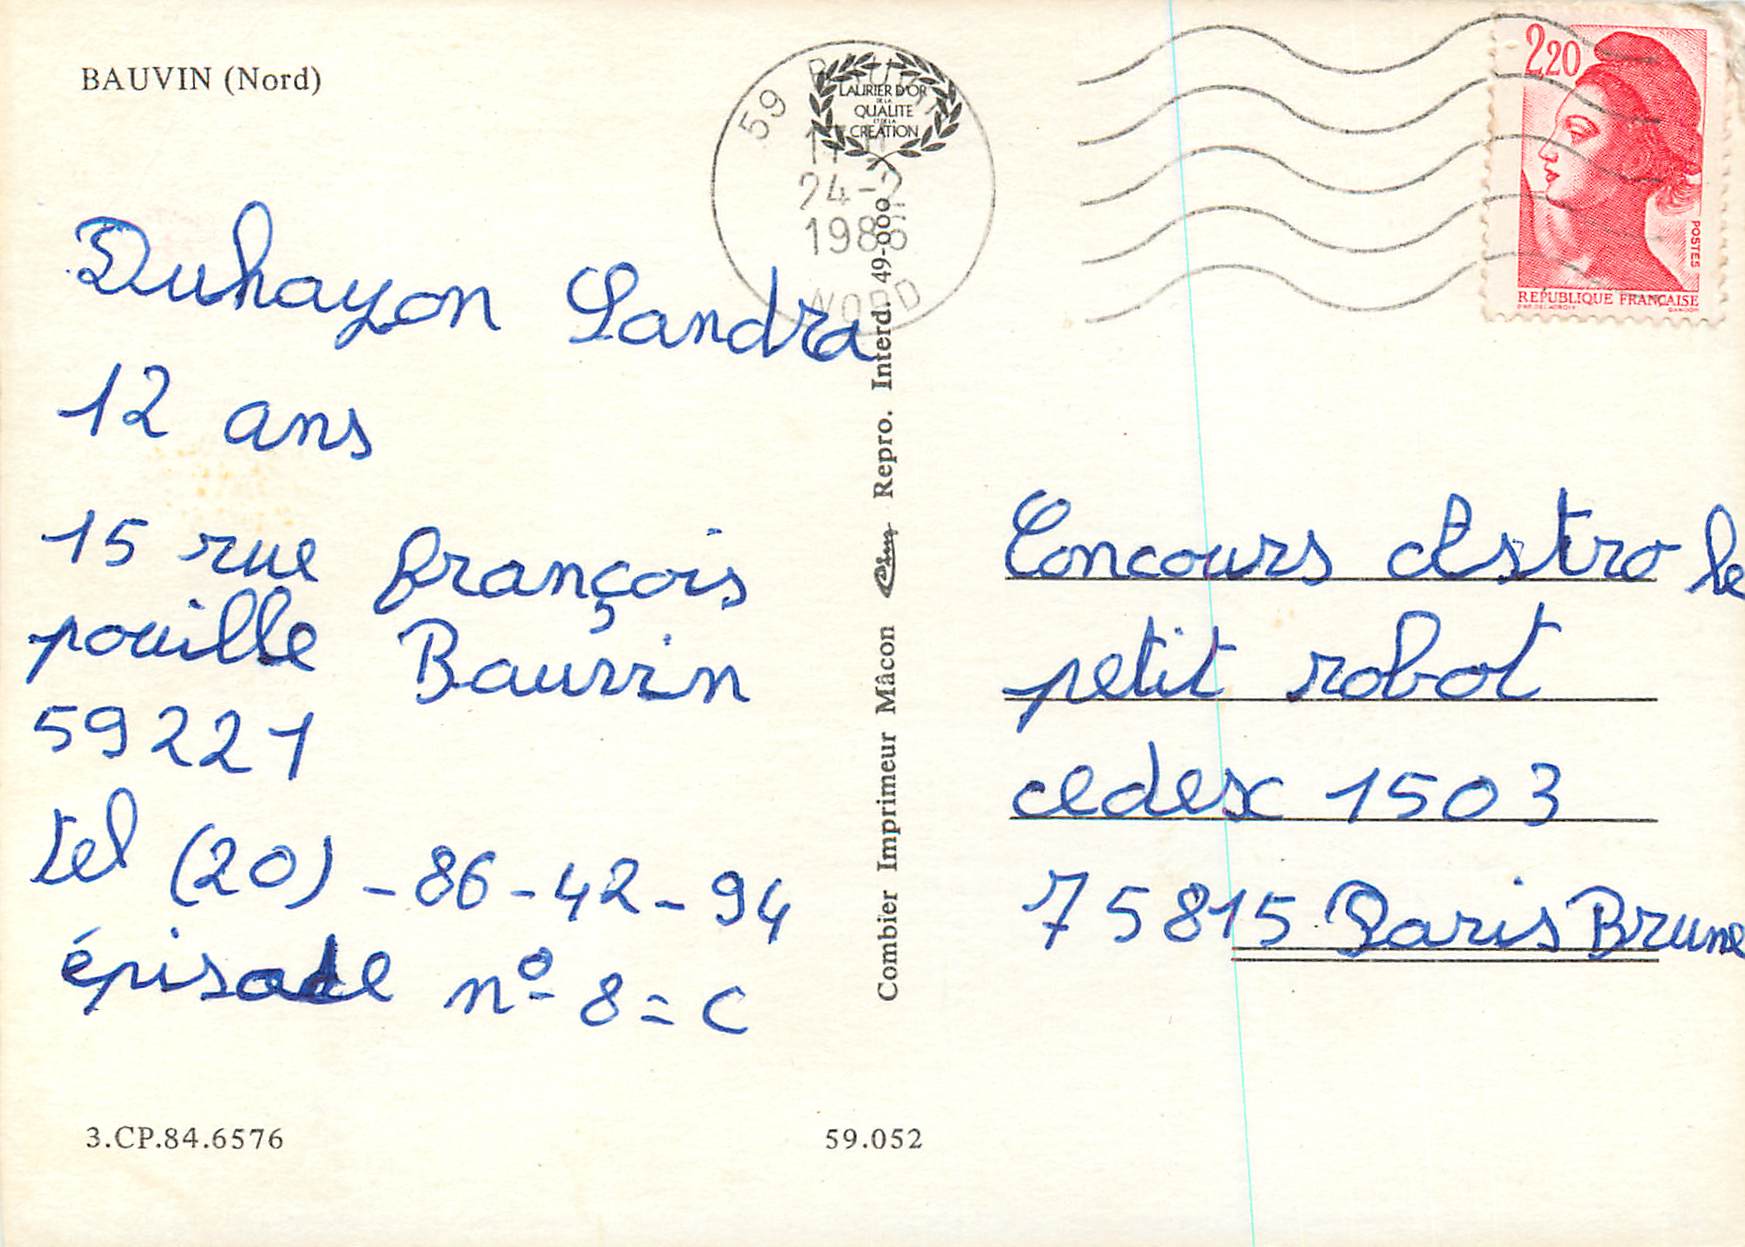 BAUVIN (Nord)
59 BAUVIN
LAURIER D'OR
DE LA
QUALITE
ET DE LA
CREATION
24-2
1986
NORD
2,20
POSTES
REPUBLIQUE FRANÇAISE
Duhayon Sandra
12 ans
15 rue françois
pouille Bauvin
59221
tel (20) - 86 - 42 - 94
épisode n° 8 = C
Combier Imprimeur Mâcon Repro. Interd. 49-000
Concours Astro le
petit robot
cedex 1503
75815 Paris Brune
3.CP.84.6576
59.052